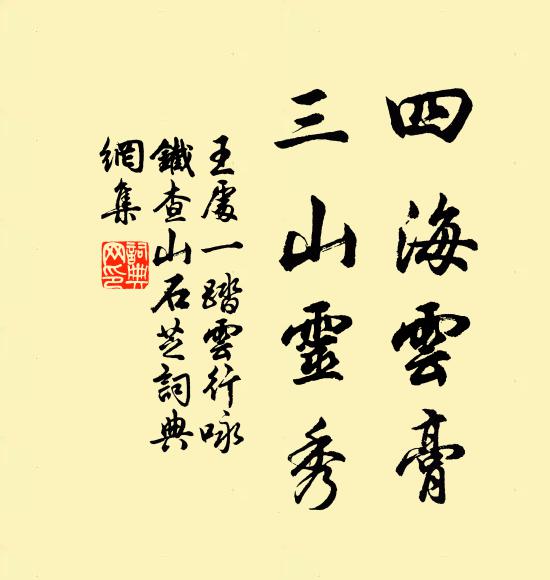 四海雲膏
三山靈秀
王處一踏雲行咏
鐵查山石芝詞典
網集
詞典網印